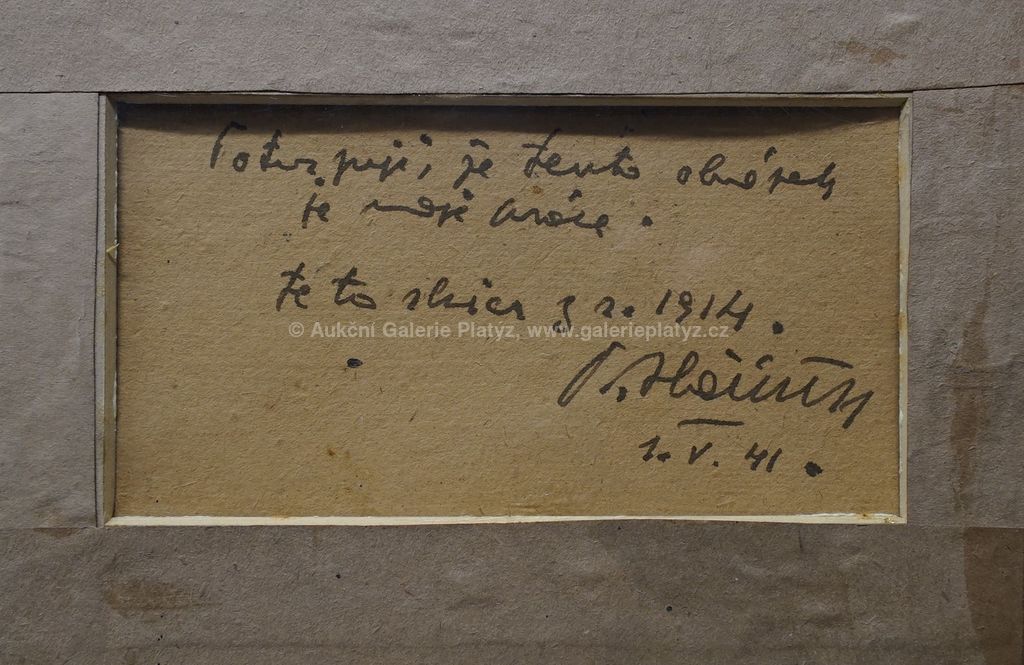 Potvrzuji, že tento obrázek
je moje práce.
Je to skica z r. 1914.
© Aukční Galerie Platýz, www.galerieplatyz.cz
1. V. 41.